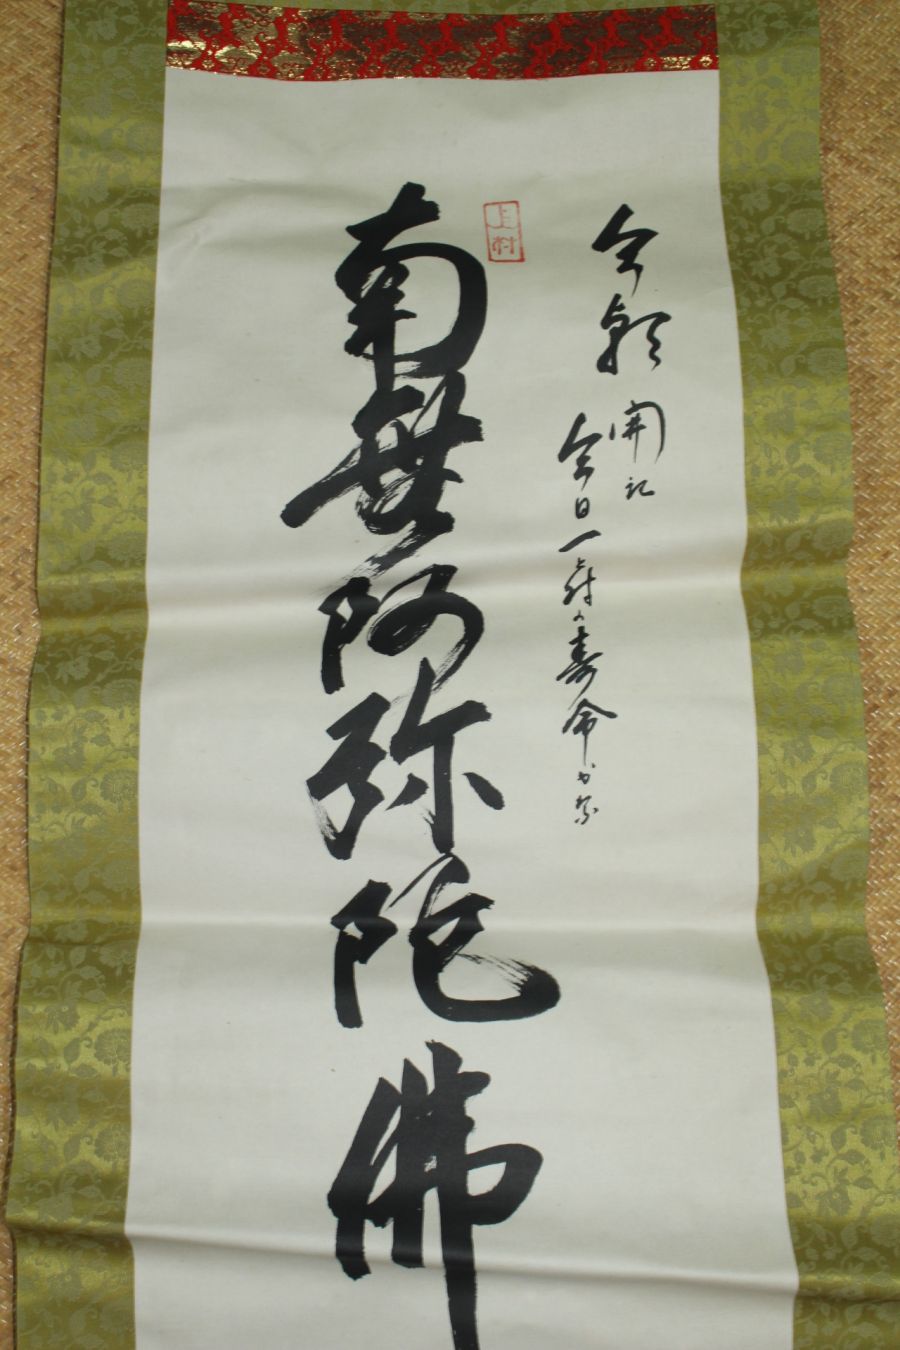 今朝
開記
今日一日の寿命かな
上村
南無阿弥陀佛